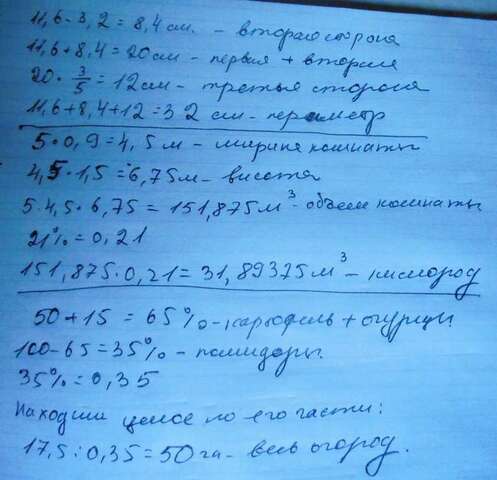 11,6 - 3,2 = 8,4 см. - вторая сторона
11,6 + 8,4 = 20 см - первая + вторая
20 · 3/5 = 12 см - третья сторона
11,6 + 8,4 + 12 = 32 см - периметр
5 · 0,9 = 4,5 м - ширина комнаты
4,5 · 1,5 = 6,75 м - высота
5 · 4,5 · 6,75 = 151,875 м³ - объем комнаты
21% = 0,21
151,875 · 0,21 = 31,89375 м³ - кислород
50 + 15 = 65% - картофель + огурцы
100 - 65 = 35% - помидоры.
35% = 0,35
Находим целое по его части:
17,5 : 0,35 = 50 га - весь огород.